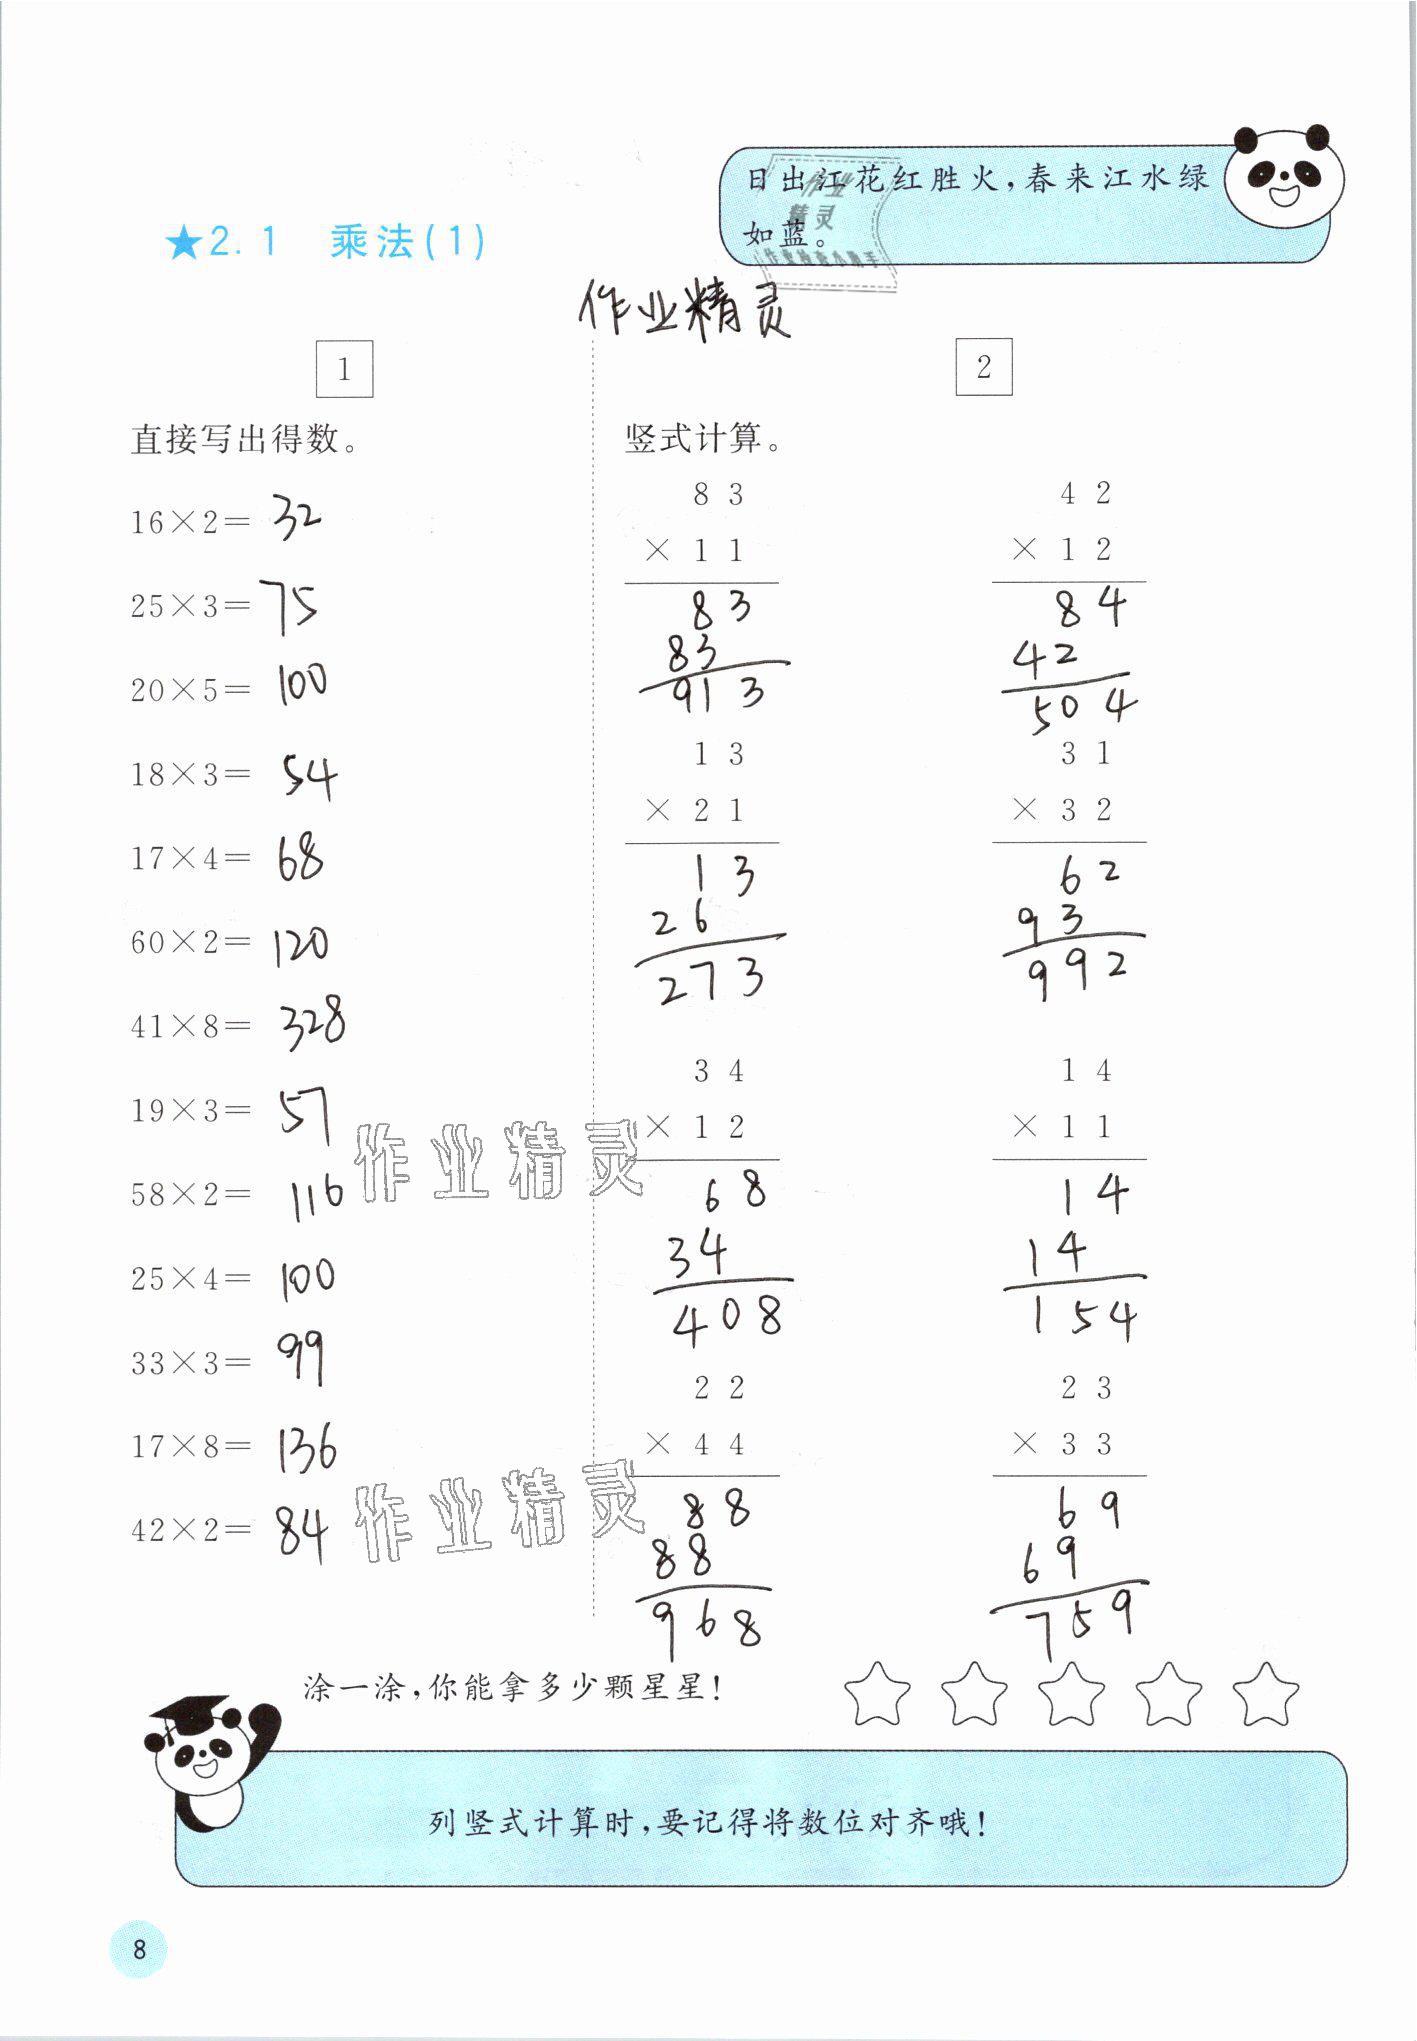 日出江花红胜火,春来江水绿
如蓝。
作业
精灵
作业检查小助手
★2.1 乘法(1)
作业精灵
1
直接写出得数。
16×2= 32
25×3= 75
20×5= 100
18×3= 54
17×4= 68
60×2= 120
41×8= 328
19×3= 57
58×2= 116
25×4= 100
33×3= 99
17×8= 136
42×2= 84
作业精灵
作业精灵
2
竖式计算。
8 3
× 1 1
8 3
8 3
9 1 3
4 2
× 1 2
8 4
4 2
5 0 4
1 3
× 2 1
1 3
2 6
2 7 3
3 1
× 3 2
6 2
9 3
9 9 2
3 4
× 1 2
6 8
3 4
4 0 8
1 4
× 1 1
1 4
1 4
1 5 4
2 2
× 4 4
8 8
8 8
9 6 8
2 3
× 3 3
6 9
6 9
7 5 9
涂一涂,你能拿多少颗星星!
列竖式计算时,要记得将数位对齐哦!
8